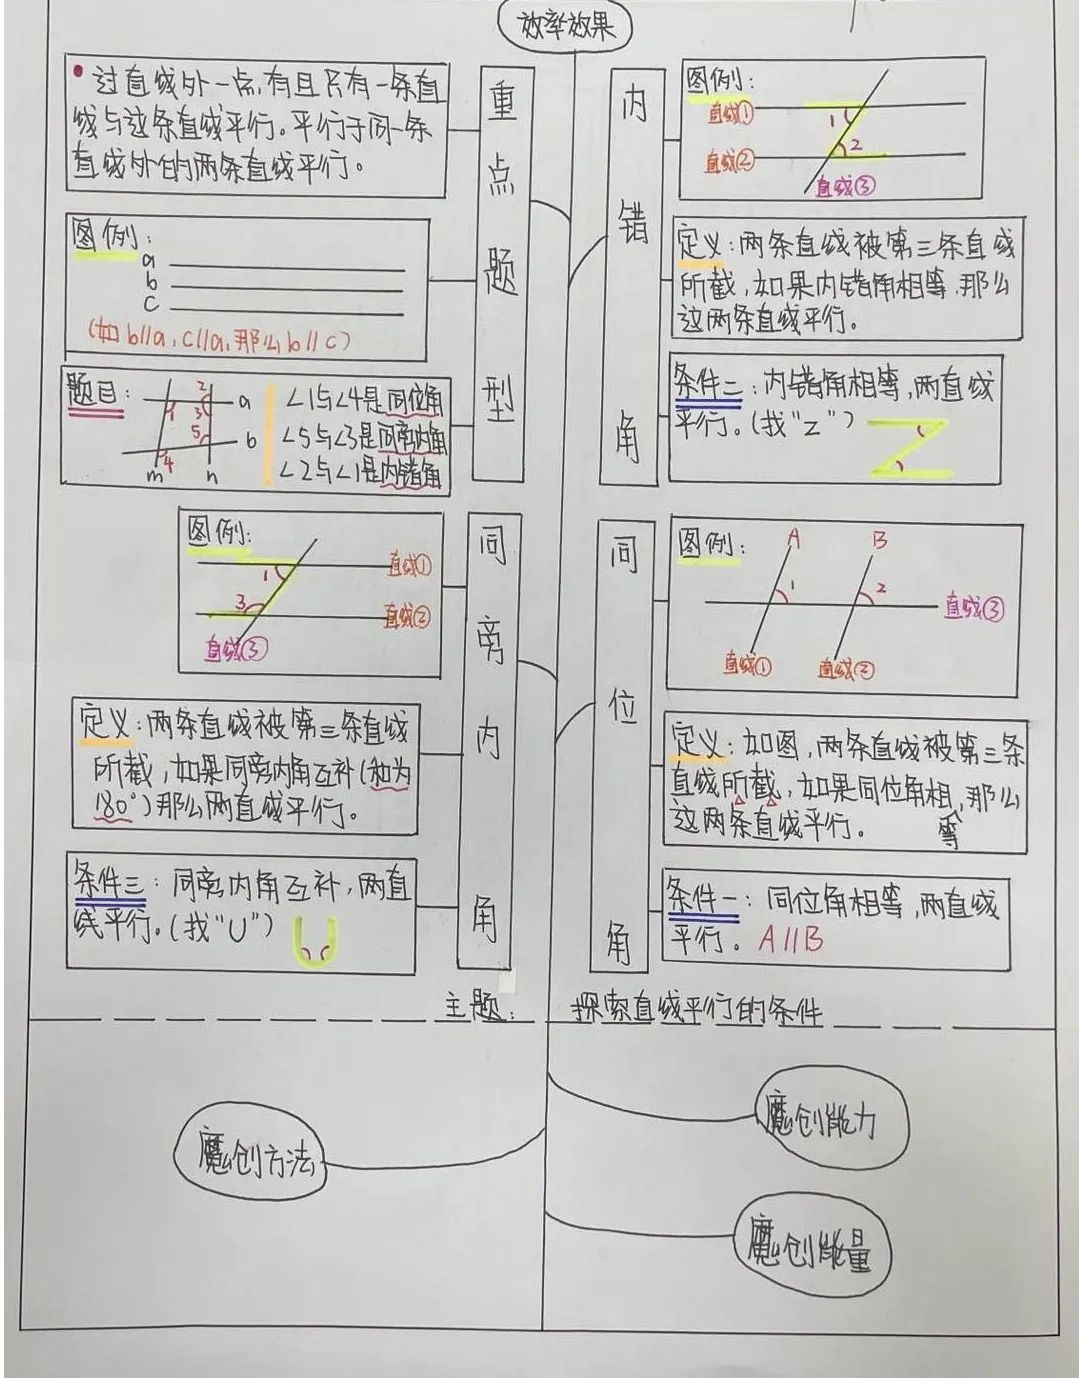 效率效果
• 过直线外一点,有且只有一条直
线与这条直线平行。平行于同一条
直线外的两条直线平行。
重点题型
图例:
a
b
c
(如b∥a,c∥a,那么b∥c)
题目:
2
1
3
a
5
b
4
m
n
∠1与∠4是同位角
∠5与∠3是同旁内角
∠2与∠1是内错角
内错角
图例:
直线①
1
直线②
2
直线③
定义:两条直线被第三条直线
所截,如果内错角相等,那么
这两条直线平行。
条件二:内错角相等,两直线
平行。(找"Z")
同旁内角
图例:
1
直线①
3
直线②
直线③
定义:两条直线被第三条直线
所截,如果同旁内角互补(和为
180°)那么两直线平行。
条件三:同旁内角互补,两直
线平行。(找"U")
同位角
图例:
A
B
1
2
直线③
直线①
直线②
定义:如图,两条直线被第三条
直线所截,如果同位角相等,那么
这两条直线平行。
条件一:同位角相等,两直线
平行。A∥B
主题:探索直线平行的条件
魔创方法
魔创能力
魔创能量